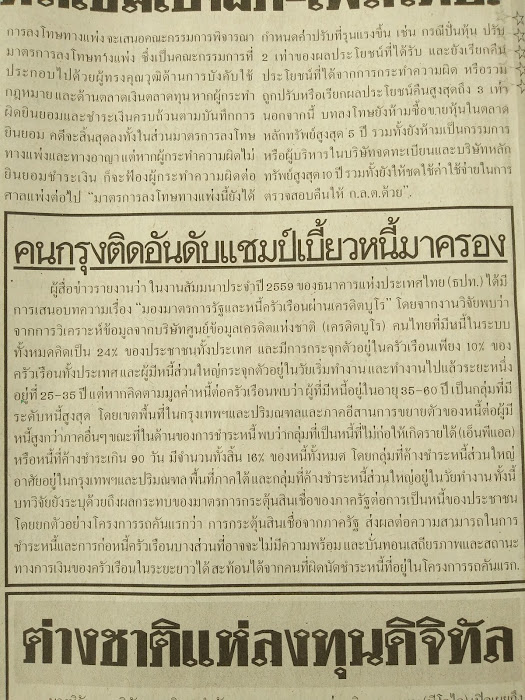 การลงโทษทางแพ่งจะเสนอคณะกรรมการพิจารณา
มาตรการลงโทษทางแพ่ง ซึ่งเป็นคณะกรรมการที่
ประกอบไปด้วยผู้ทรงคุณวุฒิด้านการบังคับใช้
กฎหมาย และด้านตลาดเงินตลาดทุน หากผู้กระทำ
ผิดยินยอมและชำระเงินครบถ้วนตามบันทึกการ
ยินยอม คดีจะสิ้นสุดลงทั้งในส่วนมาตรการลงโทษ
ทางแพ่งและทางอาญา แต่หากผู้กระทำความผิดไม่
ยินยอมชำระเงิน ก็จะฟ้องผู้กระทำความผิดต่อ
ศาลแพ่งต่อไป "มาตรการลงโทษทางแพ่งนี้ยังได้
กำหนดค่าปรับที่รุนแรงขึ้น เช่น กรณีปั่นหุ้น ปรับ
2 เท่าของผลประโยชน์ที่ได้รับ และยังเรียกคืน
ประโยชน์ที่ได้จากการกระทำความผิด หรือรวม
ถูกปรับหรือเรียกผลประโยชน์คืนสูงสุดถึง 3 เท่า
นอกจากนี้ บทลงโทษยังห้ามซื้อขายหุ้นในตลาด
หลักทรัพย์สูงสุด 5 ปี รวมทั้งยังห้ามเป็นกรรมการ
หรือผู้บริหารในบริษัทจดทะเบียนและบริษัทหลัก
ทรัพย์สูงสุด 10 ปี รวมทั้งยังให้ชดใช้ค่าใช้จ่ายในการ
ตรวจสอบคืนให้ ก.ล.ต.ด้วย".
คนกรุงติดอันดับแชมป์เบี้ยวหนี้มาครอง
ผู้สื่อข่าวรายงานว่า ในงานสัมมนาประจำปี 2559 ของธนาคารแห่งประเทศไทย (ธปท.) ได้มี
การเสนอบทความเรื่อง "มองมาตรการรัฐและหนี้ครัวเรือนผ่านเครดิตบูโร" โดยจากงานวิจัยพบว่า
จากการวิเคราะห์ข้อมูลจากบริษัทศูนย์ข้อมูลเครดิตแห่งชาติ (เครดิตบูโร) คนไทยที่มีหนี้ในระบบ
ทั้งหมดคิดเป็น 24% ของประชาชนทั้งประเทศ และมีการกระจุกตัวอยู่ในครัวเรือนเพียง 10% ของ
ครัวเรือนทั้งประเทศ และผู้มีหนี้ส่วนใหญ่กระจุกตัวอยู่ในวัยเริ่มทำงาน และทำงานไปแล้วระยะหนึ่ง
อยู่ที่ 25-35 ปี แต่หากคิดตามมูลค่าหนี้ต่อครัวเรือนพบว่า ผู้ที่มีหนี้อยู่ในอายุ 35-60 ปี เป็นกลุ่มที่มี
ระดับหนี้สูงสุด โดยเขตพื้นที่ในกรุงเทพฯและปริมณฑลและภาคอีสานการขยายตัวของหนี้ต่อผู้มี
หนี้สูงกว่าภาคอื่นๆ ขณะที่ในด้านของการชำระหนี้ พบว่ากลุ่มที่เป็นหนี้ที่ไม่ก่อให้เกิดรายได้ (เอ็นพีแอล)
หรือหนี้ที่ค้างชำระเกิน 90 วัน มีจำนวนทั้งสิ้น 16% ของหนี้ทั้งหมด โดยกลุ่มที่ค้างชำระหนี้ส่วนใหญ่
อาศัยอยู่ในกรุงเทพฯและปริมณฑล พื้นที่ภาคใต้ และกลุ่มที่ค้างชำระหนี้ส่วนใหญ่อยู่ในวัยทำงาน ทั้งนี้
บทวิจัยยังระบุด้วยถึงผลกระทบของมาตรการกระตุ้นสินเชื่อของภาครัฐต่อการเป็นหนี้ของประชาชน
โดยยกตัวอย่างโครงการรถคันแรกว่า การกระตุ้นสินเชื่อจากภาครัฐ ส่งผลต่อความสามารถในการ
ชำระหนี้และการก่อหนี้ครัวเรือนบางส่วนที่อาจจะไม่มีความพร้อม และบั่นทอนเสถียรภาพและสถานะ
ทางการเงินของครัวเรือนในระยะยาวได้ สะท้อนได้จากคนที่ผิดนัดชำระหนี้ที่อยู่ในโครงการรถคันแรก.
ต่างชาติแห่ลงทุนดิจิทัล